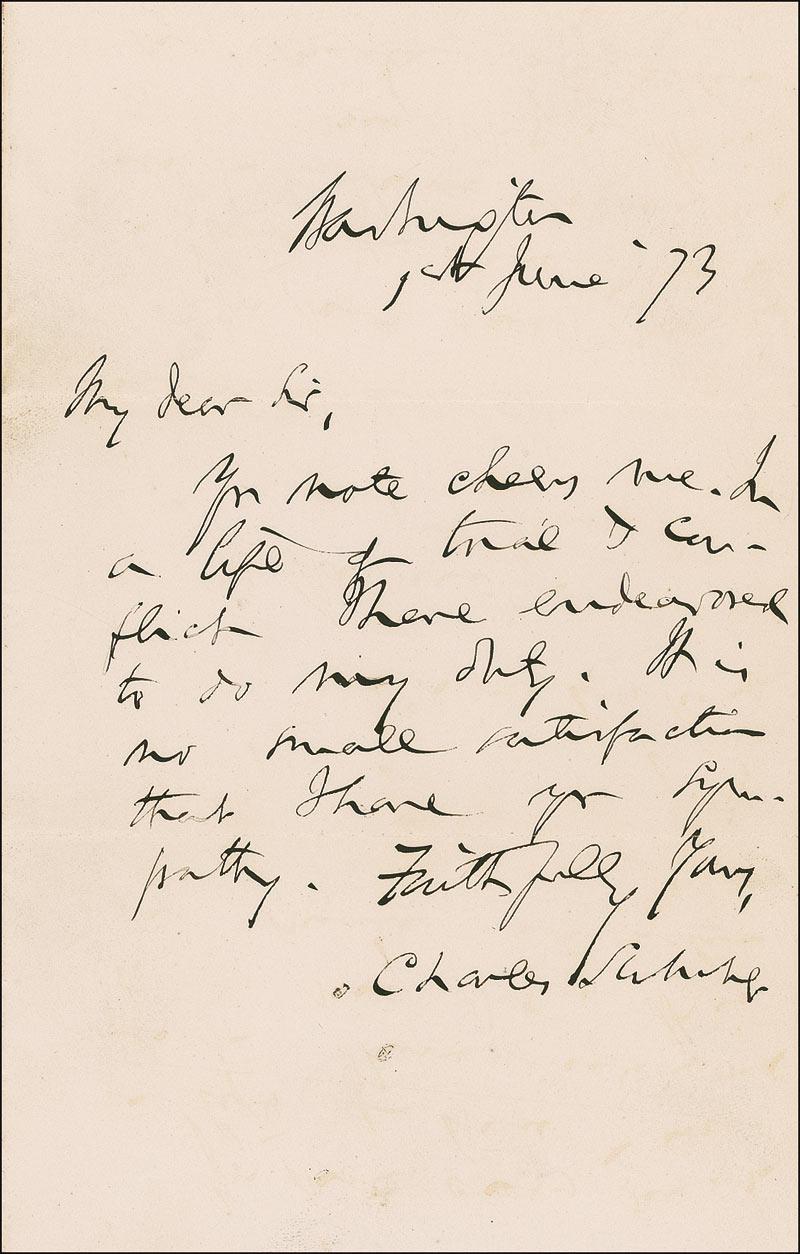 Washington
1st June '73
My dear Sir,
Yr note cheers me. In
a life of trial & con-
flict I have endeavored
to do my duty. It is
no small satisfaction
that I have yr sym-
pathy. Faithfully Yours,
Charles Sumner